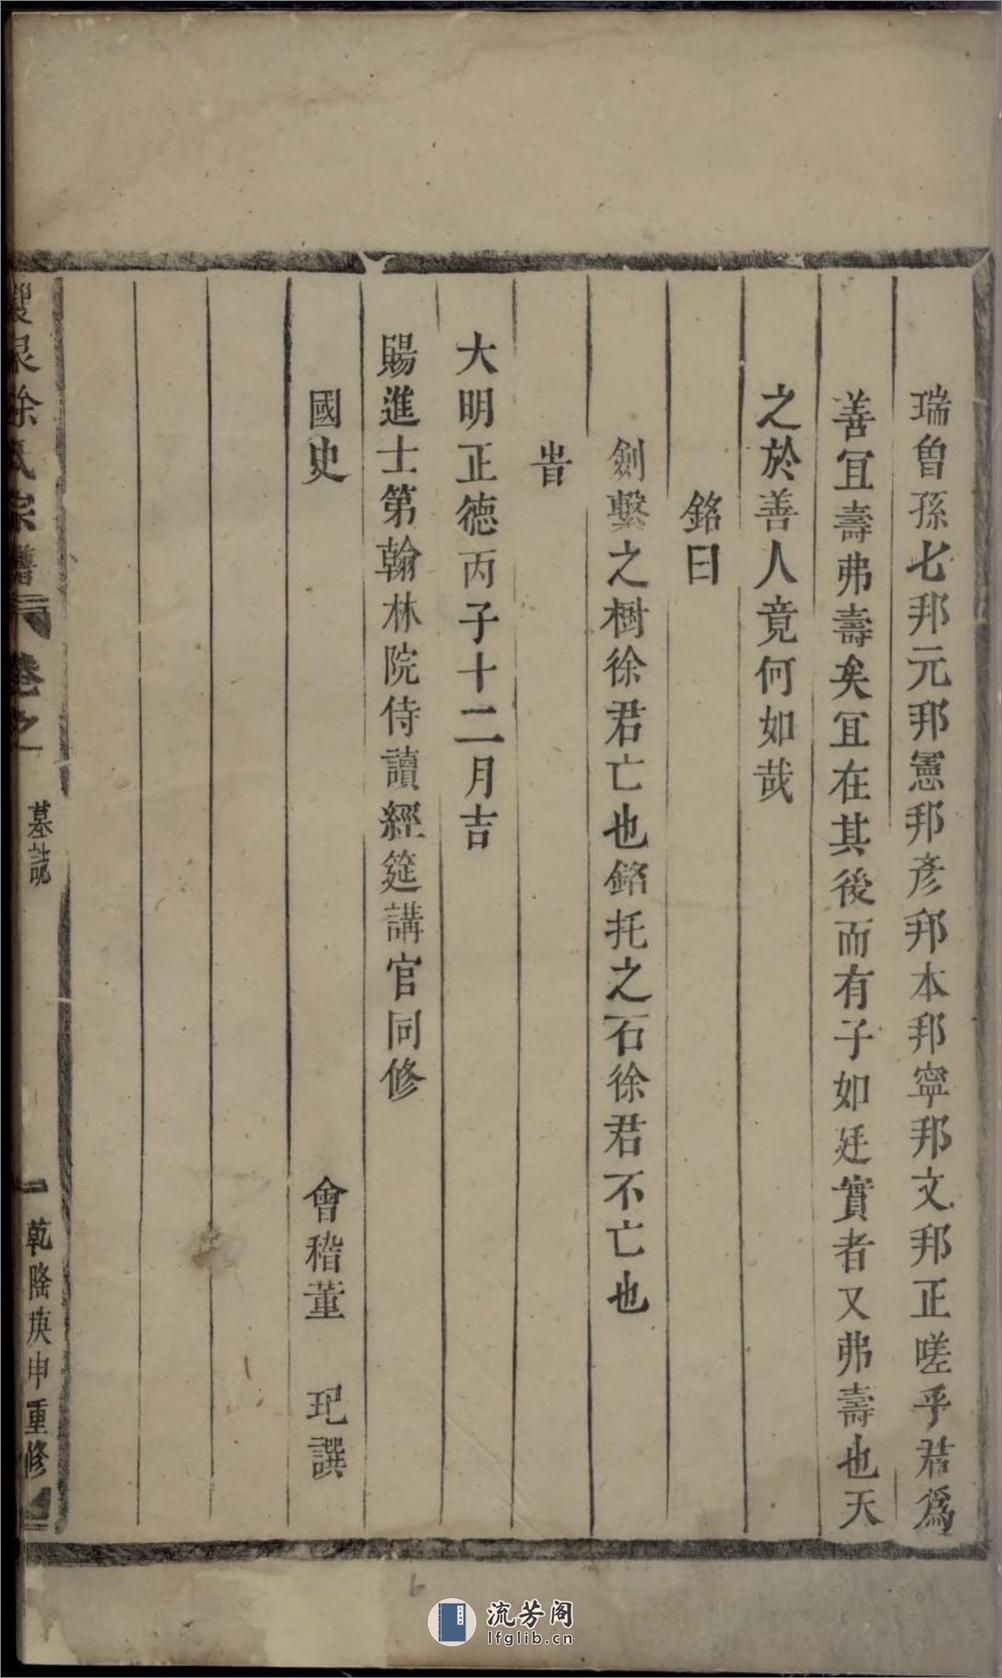 瑞曾孫七邦元邦憲邦彥邦本邦寧邦文邦正嗟乎君爲
善宜壽弗壽矣宜在其後而有子如廷實者又弗壽也天
之於善人竟何如哉
銘曰
劍繫之樹徐君亡也銘托之石徐君不亡也
旹
大明正德丙子十二月吉
賜進士第翰林院侍讀經筵講官同修
國史
會稽董 玘譔
雙泉徐氏宗譜 卷之一 墓誌 一 乾隆庚申重修
6
流芳阁
lfglib.cn